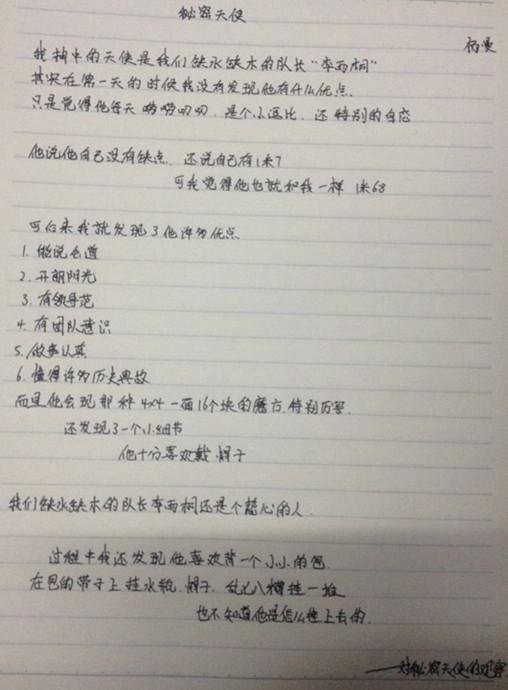 秘密天使
杨曼
我抽中的天使是我们缺水缺木的队长“李雨桐”
其实在第一天的时候我没有发现他有什么优点.
只是觉得他每天唠唠叨叨.是个小逗比.还特别的自恋
他说他自己没有缺点.还说自己有1米7
可我觉得他也就和我一样 1米68
可后来我就发现了他许多优点
1. 能说会道
2. 开朗阳光
3. 有领导范
4. 有团队意识
5. 做事认真
6. 懂得许多历史典故
而且他会玩那种4x4一面16个块的魔方.特别厉害.
还发现了一个小细节
他十分喜欢戴帽子
我们缺水缺木的队长李雨桐还是个慧心的人.
过程中我还发现他喜欢背一个小小的包.
在包的带子上挂水瓶.帽子.乱七八糟挂一堆
也不知道他是怎么挂上去的.
——对秘密天使的观察